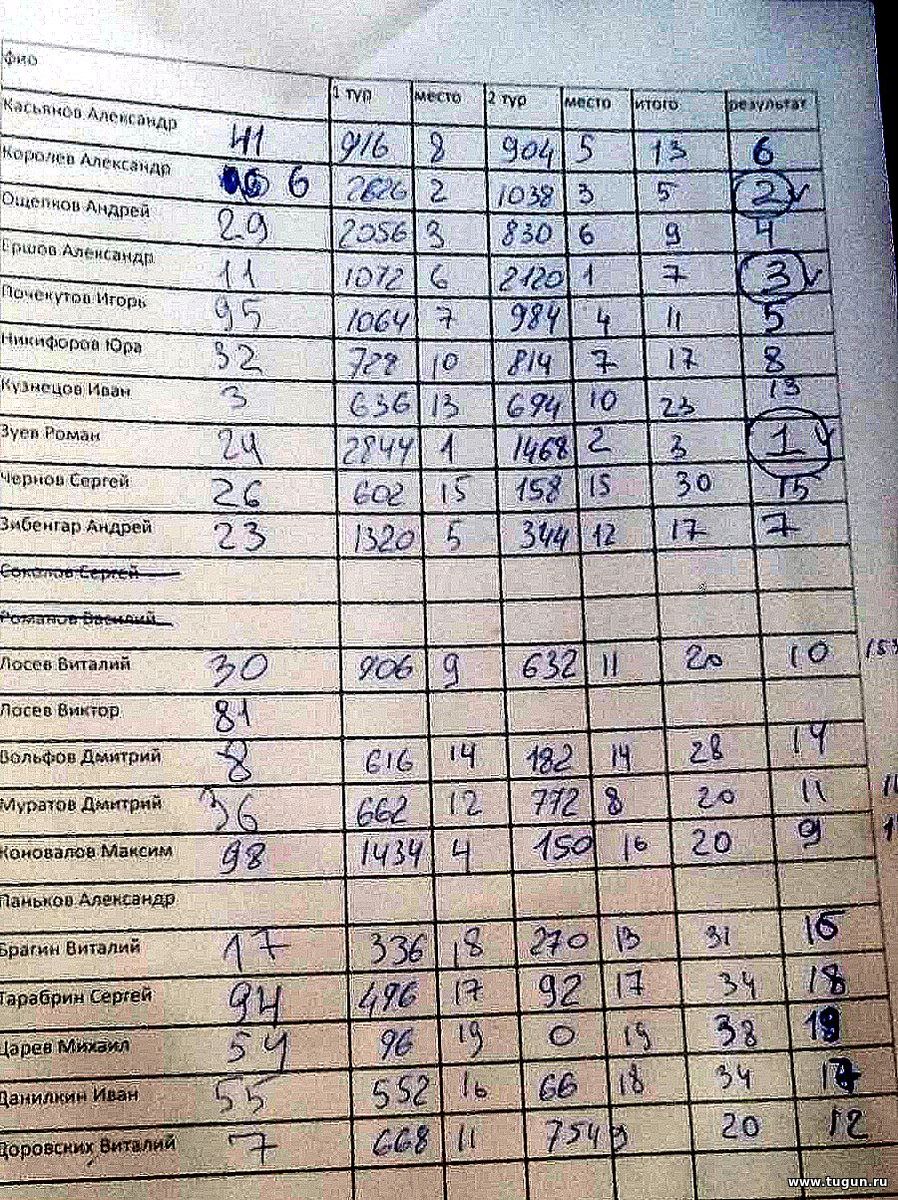 фио 1 тур место 2 тур место итого результат
Касьянов Александр 41 916 8 904 5 13 6
Королев Александр 6 2626 2 1038 3 5 2
Ощепков Андрей 29 2056 3 830 6 9 4
Ершов Александр 11 1072 6 2120 1 7 3
Почекутов Игорь 95 1064 7 984 4 11 5
Никифоров Юра 32 728 10 814 7 17 8
Кузнецов Иван 3 636 13 694 10 23 13
Зуев Роман 24 2844 1 1468 2 3 1
Чернов Сергей 26 602 15 158 15 30 15
Зибенгар Андрей 23 1320 5 344 12 17 7
Соколов Сергей
Романов Василий
Лосев Виталий 30 906 9 632 11 20 10
Лосев Виктор 81
Вольфов Дмитрий 8 616 14 182 14 28 14
Муратов Дмитрий 36 662 12 772 8 20 11
Коновалов Максим 98 1434 4 150 16 20 9
Паньков Александр
Брагин Виталий 17 336 18 270 13 31 16
Тарабрин Сергей 94 496 17 92 17 34 18
Царев Михаил 54 96 19 0 19 38 19
Данилкин Иван 55 552 16 66 18 34 17
Доровских Виталий 7 668 11 754 9 20 12
www.tugun.ru